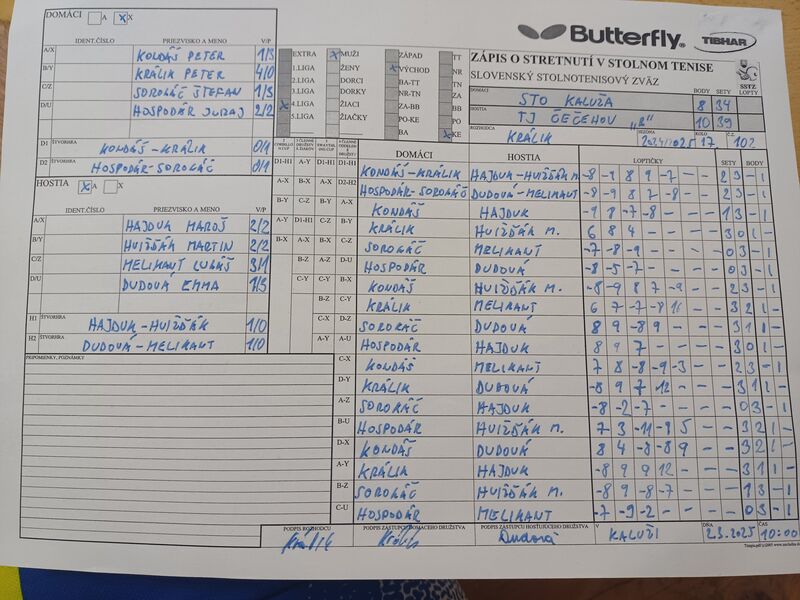 DOMÁCI A X X
IDENT.ČÍSLO PRIEZVISKO A MENO V/P
A/X KONDÁŠ PETER 1/3
B/Y KRÁLIK PETER 4/0
C/Z SOROKÁČ ŠTEFAN 1/3
D/U HOSPODÁR JURAJ 2/2
D1 ŠTVORHRA KONDÁŠ-KRÁLIK 0/1
D2 ŠTVORHRA HOSPODÁR-SOROKÁČ 0/1
HOSTIA X A X
IDENT.ČÍSLO PRIEZVISKO A MENO V/P
A/X HAJDUK MAROŠ 2/2
B/Y HVIŽŠÁK MARTIN 2/2
C/Z MELIKANT LUKÁŠ 3/1
D/U DUDOVÁ EMMA 1/3
H1 ŠTVORHRA HAJDUK-HVIŽŠÁK 1/0
H2 ŠTVORHRA DUDOVÁ-MELIKANT 1/0
PRIPOMIENKY, POZNÁMKY
Butterfly TIBHAR
ZÁPIS O STRETNUTÍ V STOLNOM TENISE
SLOVENSKÝ STOLNOTENISOVÝ ZVÄZ
SSTZ
EXTRA X MUŽI ZÁPAD TT
1.LIGA ŽENY X VÝCHOD NR
2.LIGA DORCI BA-TT
3.LIGA DORKY NR-TN ZA
X 4.LIGA ŽIACI ZA-BB
5.LIGA ŽIAČKY PO-KE
BA X KE
BODY SETY LOPTY
DOMÁCI STO KALUŽA 8 34
HOSTIA TJ ČEČEHOV "B" 10 39
ROZHODCA KRÁLIK SEZÓNA 2024/2025 KOLO 17 Č.Z. 102
DOMÁCI HOSTIA LOPTIČKY SETY BODY
D1-H1 KONDÁŠ-KRÁLIK HAJDUK-HVIŽŠÁK M. -8 -9 8 9 -7 2 3 - 1
D2-H2 HOSPODÁR-SOROKÁČ DUDOVÁ-MELIKANT -8 -9 8 7 -8 2 3 - 1
A-X KONDÁŠ HAJDUK -9 8 -7 -8 1 3 - 1
B-Y KRÁLIK HVIŽŠÁK M. 6 8 4 3 0 1 -
C-Z SOROKÁČ MELIKANT -7 -8 -9 0 3 - 1
HOSPODÁR DUDOVÁ -8 -5 -7 0 3 - 1
KONDÁŠ HVIŽŠÁK M. -8 -9 8 7 -9 2 3 - 1
KRÁLIK MELIKANT 6 7 -7 -8 11 3 2 1 -
D-Z SOROKÁČ DUDOVÁ 8 9 -8 9 3 1 1 -
A-U HOSPODÁR HAJDUK 8 9 7 3 0 1 -
C-X KONDÁŠ MELIKANT 7 8 -8 -9 -3 2 3 - 1
D-Y KRÁLIK DUDOVÁ -8 9 7 12 3 1 1 -
A-Z SOROKÁČ HAJDUK -8 -2 -7 0 3 - 1
B-U HOSPODÁR HVIŽŠÁK M. 7 3 -11 -8 5 3 2 1 -
D-X KONDÁŠ DUDOVÁ 8 4 -8 -8 9 3 2 1 -
A-Y KRÁLIK HAJDUK -8 9 9 12 3 1 1 -
B-Z SOROKÁČ HVIŽŠÁK M. -8 9 -8 -7 1 3 - 1
C-U HOSPODÁR MELIKANT -7 -9 -2 0 3 - 1
PODPIS ROZHODCU Králik
PODPIS ZÁSTUPCU DOMÁCEHO DRUŽSTVA Králik
PODPIS ZÁSTUPCU HOSŤUJÚCEHO DRUŽSTVA Dudová
V KALUŽI DŇA 2.3.2025 ČAS 10:00